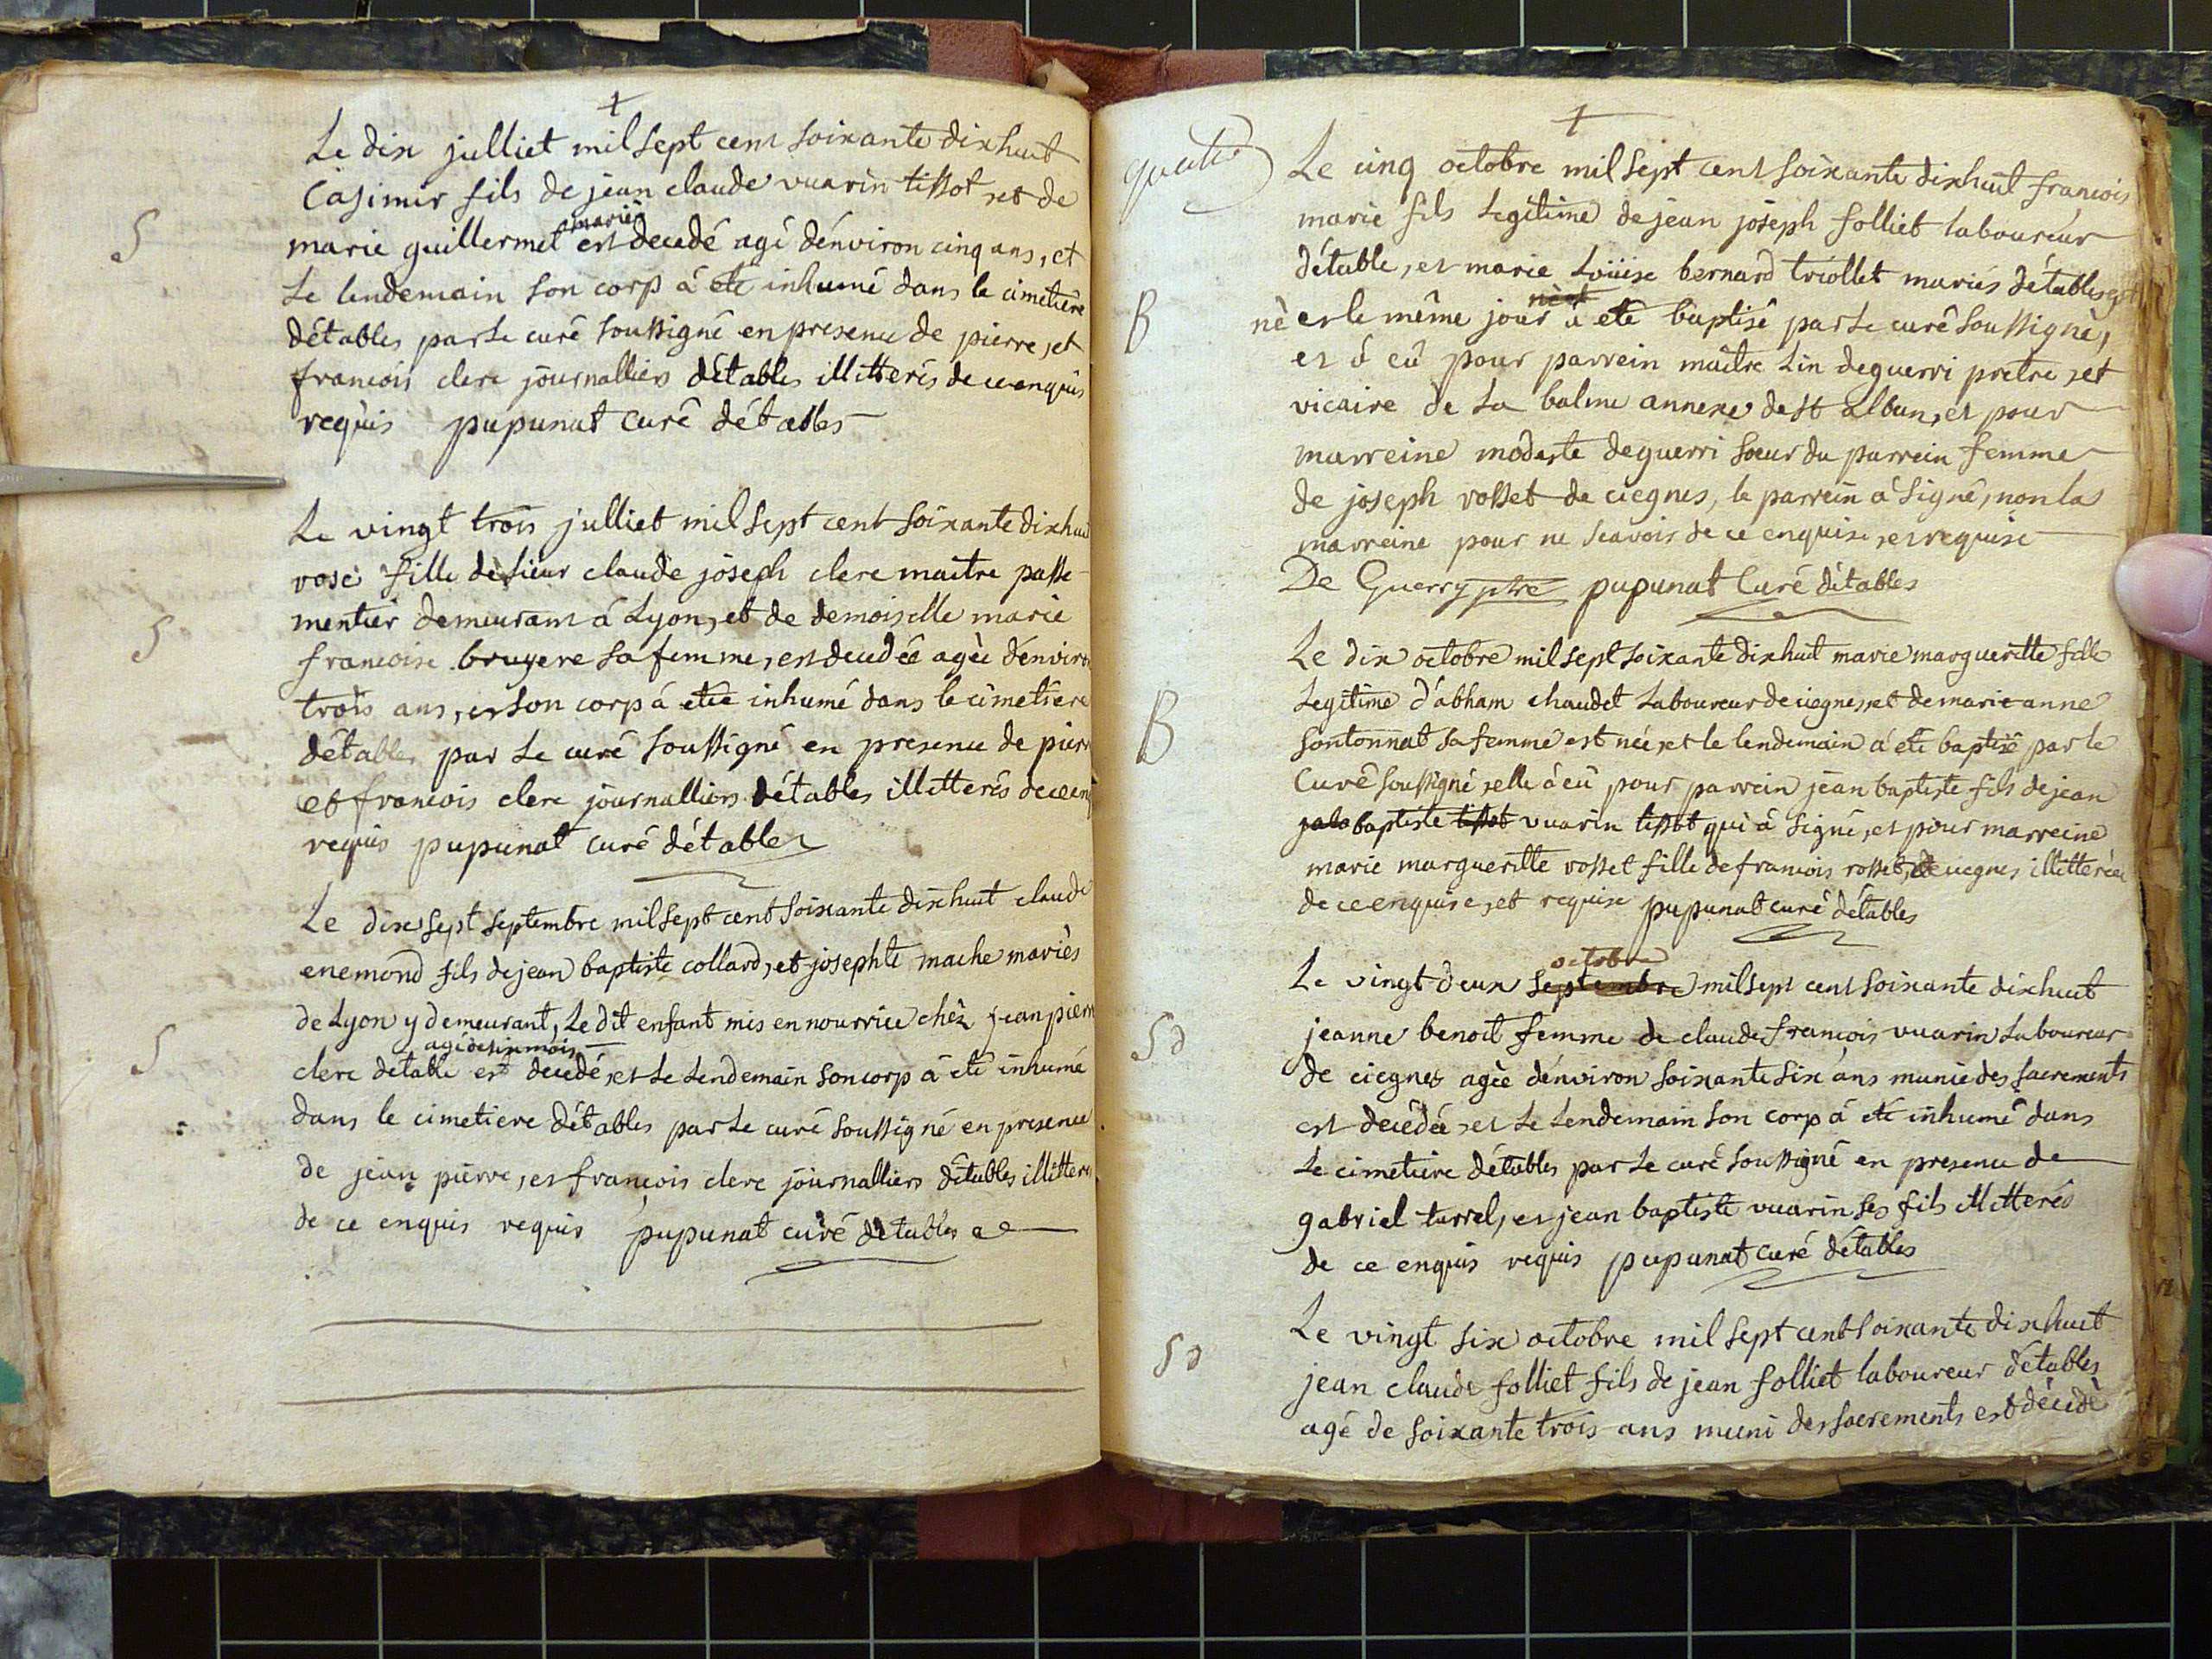 Le dix julliet mil sept cent soixante dixhuit
Casimir fils de jean claude vuarin tissot, et de
mariés
marie guillermet est decedé agé dénviron cinq ans, et
S
Le lendemain son corp á eté inhumé dans le cimetiere
détables par Le curé soussigné en presence de pierre, et
francois clerc journalliers détables illitterés de ce enquis
requis pupunat curé détables
Le vingt trois julliet mil sept cent soixante dixhuit
rose fille de sieur claude joseph clerc maitre passe-
mentier demeurant á Lyon, et de demoiselle marie
S
francoise bruyere sa femme, est decedée agée dénviron
trois ans, et son corp á eté inhumé dans le cimetiere
détables par Le curé soussigné en presence de pierre
et francois clerc journalliers détables illitterés de ce enq
requis pupunat curé détables
Le dix sept septembre mil sept cent soixante dixhuit claude
enemond fils de jean baptiste collard, et josephte mache mariés
de Lyon y demeurant, Le dit enfant mis en nourrice chéz jean pierre
agé de six mois
S
clerc détable est decedé, et Le Lendemain son corp á eté inhumé
dans le cimetiere détables par Le curé soussigné en presence
de jean pierre, et francois clerc journalliers détables illitterés
de ce enquis requis pupunat curé détables
quatre
Le cinq octobre mil sept cent soixante dixhuit francois
marie fils Legitime de jean joseph folliet laboureur
détable, et marie Loüise bernard triollet mariés détables, est
B
né et le même jour á eté baptisé par Le curé soussigné,
et á eû pour parrein maitre Lin deguerri pretre, et
vicaire de La balme annexe de st alban, et pour
marreine modeste deguerri soeur du parrein femme
de joseph rosset de ciegnes, le parrein á signé, non la
marreine pour ne scavoir de ce enquise, et requise
De Guerry ptre pupunat Curé détables
Le dix octobre mil sept soixante dixhuit marie margueritte fille
Legitime d'abham chaudet Laboureur de ciegnes, et de marie anne
B
sontonnat sa femme est née, et le lendemain á eté baptisé par le
Curé soussigné, elle á eû pour parrein jean baptiste fils de jean
baptiste tissot vuarin tissot qui á signé, et pour marreine
marie margueritte rosset fille de francois rosset, de ciegnes illitterée
de ce enquise, et requise pupunat curé détables
octobre
Le vingt deux septembre mil sept cent soixante dixhuit
Sd
jeanne benoit femme de claude francois vuarin Laboureur
de ciegnes agée dénviron soixante six ans munie des sacrements
est decédée, et Le Lendemain son corp á eté inhumé dans
Le cimetiere détables par Le curé soussigné en presence de
gabriel turrel, et jean baptiste vuarin ses fils illitterés
de ce enquis requis pupunat curé détables
Sd
Le vingt six octobre mil sept cent soixante dixhuit
jean claude folliet fils de jean folliet laboureur détables
agé de soixante trois ans muni des sacrements est décedé